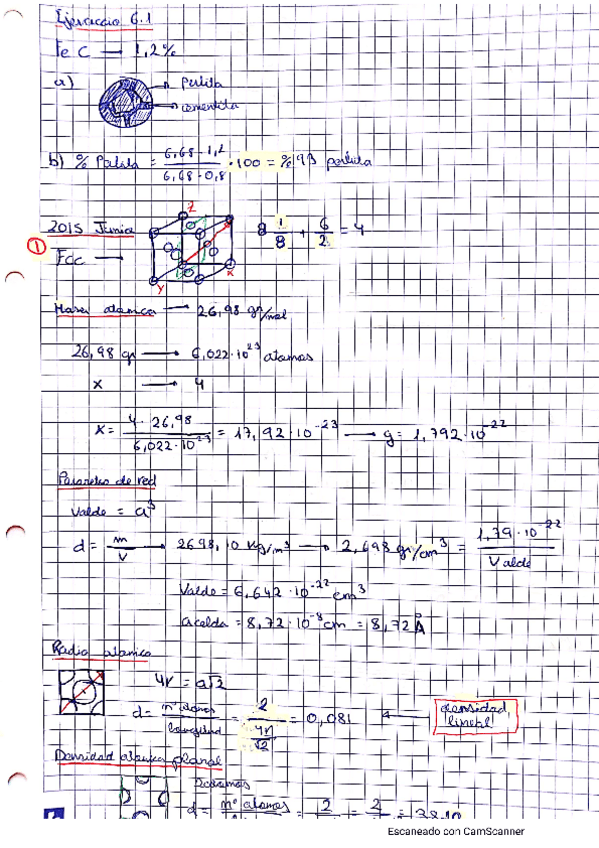 Ejercicio 6.1
Fe C → 1,2%
a)
→ Perlita
→ cementita
b) % Perlita = (6,68 - 1,2) / (6,68 - 0,8) · 100 = % 93 perlita
2015 Junio
① FCC →
Z
X
Y
8 1/8 + 6/2 = 4
Masa atomica → 26,98 gr/mol
26,98 gr → 6,022·10^23 atomos
x → 4
x = (4 · 26,98) / (6,022·10^23) = 17,92·10^-23 → g = 1,792·10^-22
Parametro de red
Vcelda = a^3
d = m/V → 2698,10 kg/m^3 → 2,698 gr/cm^3 = 1,79·10^-22 / Vcelda
Vcelda = 6,642·10^-22 cm^3
acelda = 8,72·10^-8 cm = 8,72 Å
Radio atomico
4r = a√2
d = nº atomos / longitud = 2 / (4r/√2) = 0,081 ← densidad lineal
Densidad atomica planal
d = nº atomos = 2 = 2 =
Escaneado con CamScanner